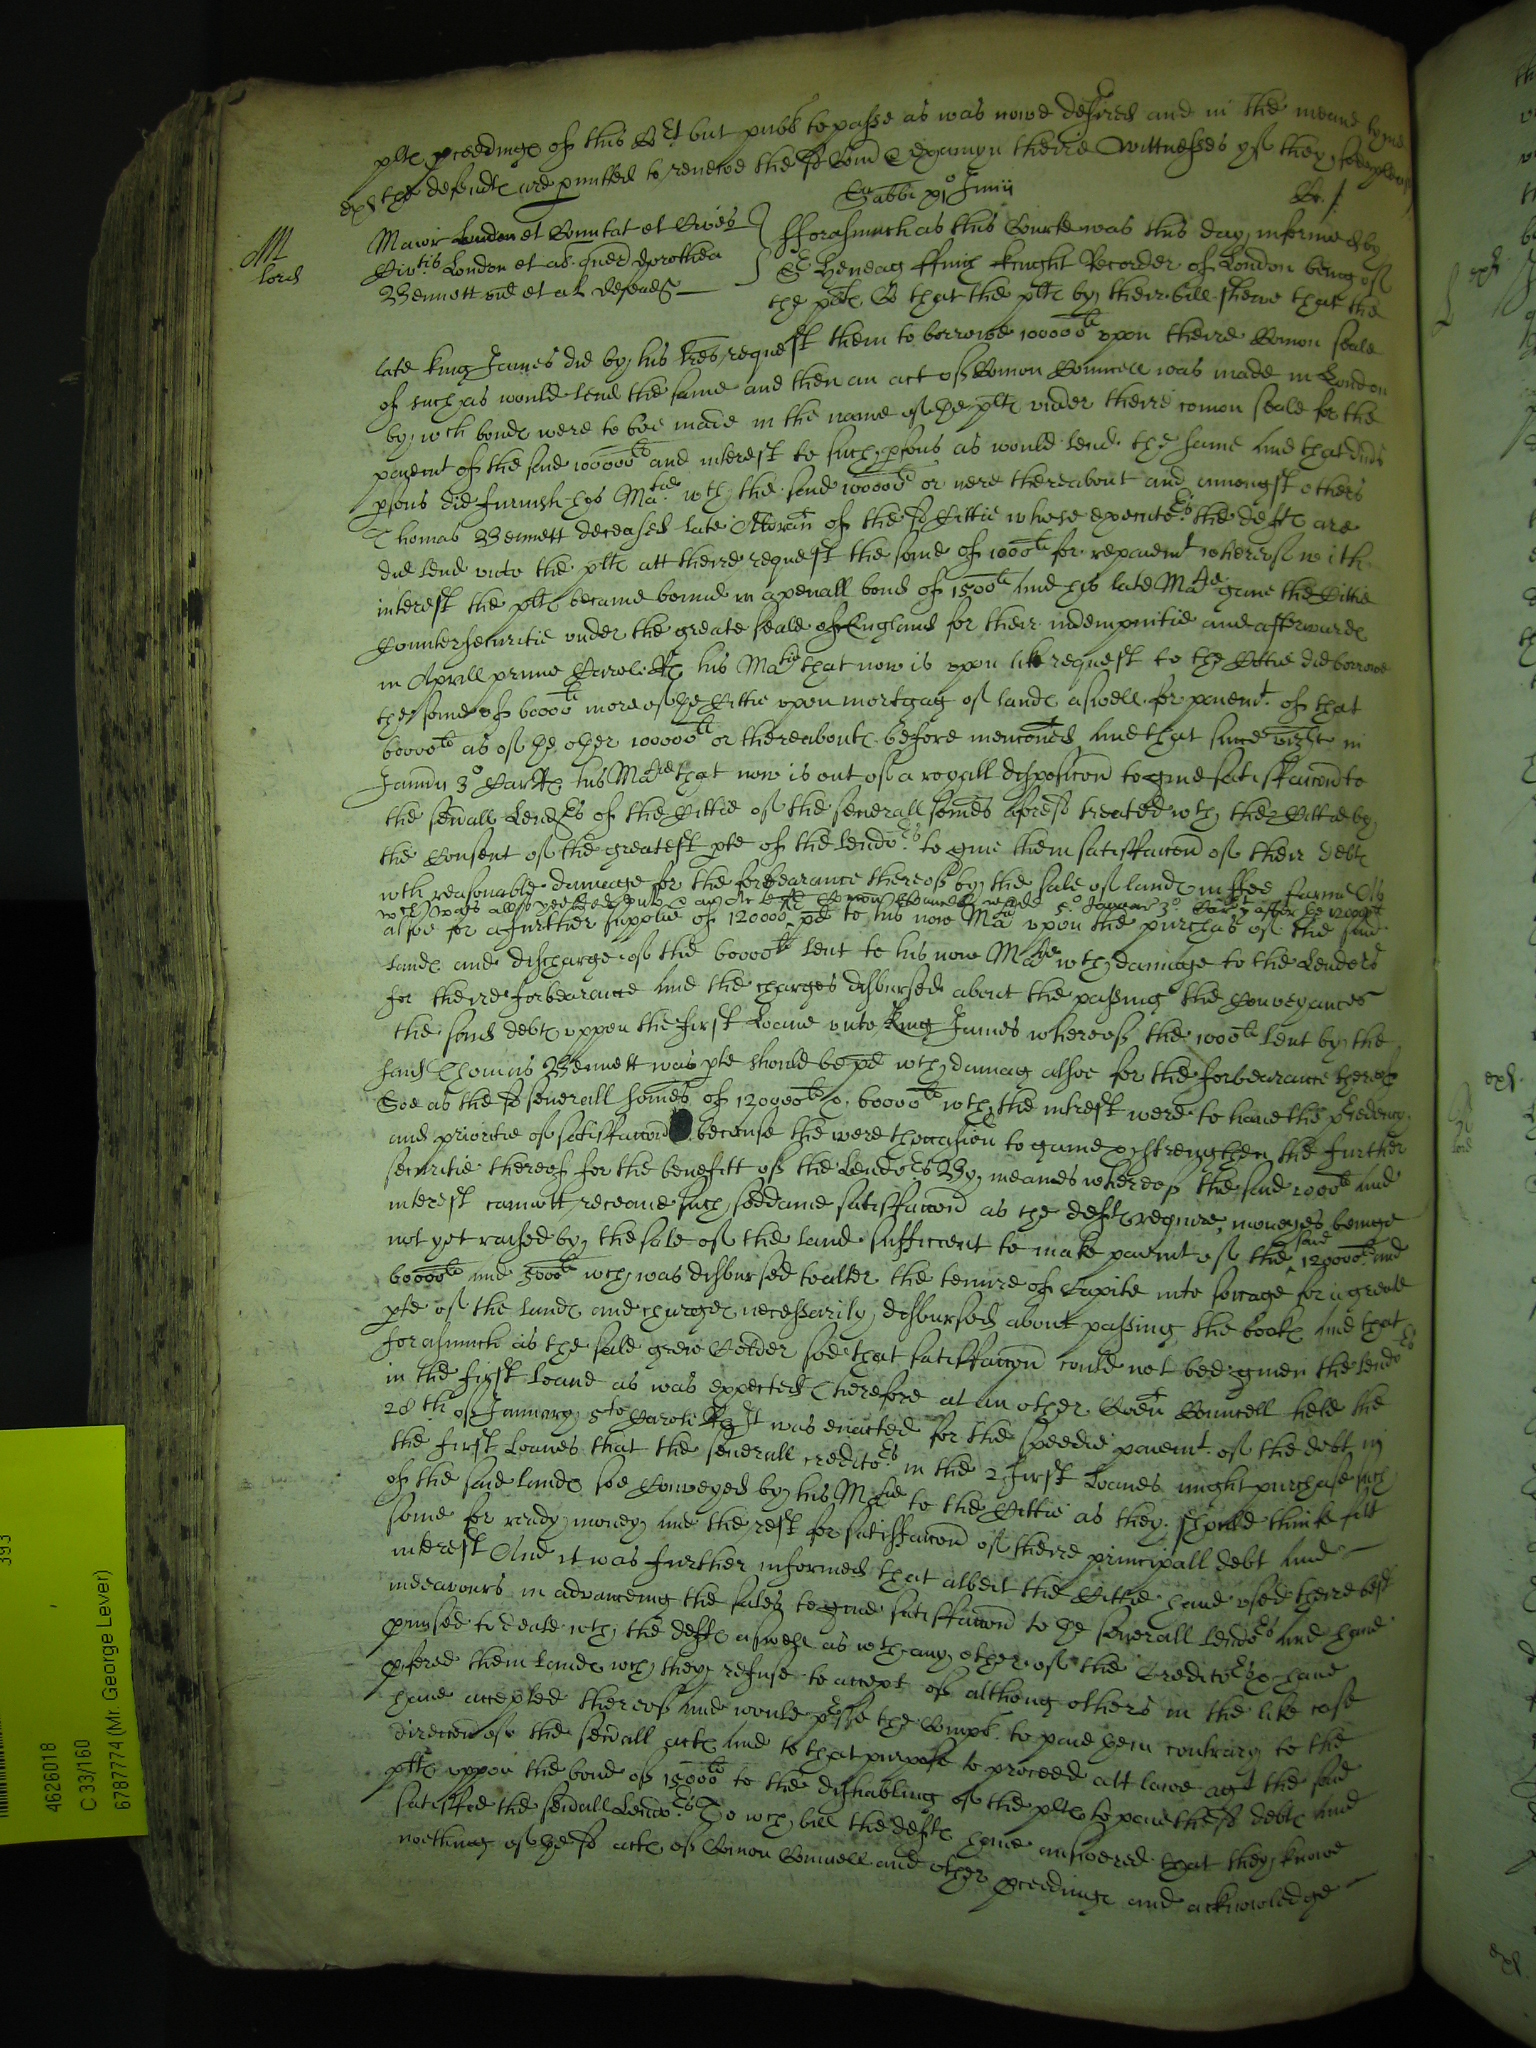 plts pceedings of this Cort but publ to passe as was nowe desired and in the meane tyme
exd the defendts are pmitted to renewe the sd Comn & examyn theire Wittnesses yf they soe please
Sabbi xi° Junii
Maior London et Cominitat et Cives
Civitis London et al quer Dorothea
Bennett vid et al defends
M
lord
fforasmuch as this Courte was this day informed by
Sr Heneag ffinch knight Recorder of London being of
the plts C that the plts by their bill shewe that the
late king James did by his tres request them to borrowe 100000li vpon theire Comon seale
of such as would lend the same and then an act of Comon Councell was made in London
by wch bonds were to bee made in the name of the plts vnder theire comon seale for the
paient of the said 100000li and interest to such psons as would lend the same And that divs
psons did furnish his Matie wth the said 100000li or nere thereabout and amongst others
Thomas Bennett deceased late Alderan of the sd Cittie whose executors the defts are
did lend vnto the plts att theire request the some of 1000li for repaiemt whereof with
interest the plts became bound in a penall bond of 1500li And his late Matie gaue the Cittie
Countersecuritie vnder the greate seale of England for their indempnitie and afterwards
in Aprill primo Caroli Rs his Matie that now is vpon like request to the Cittie did borrowe
the some of 60000li more of the Cittie vpon mortgag of lands aswell for paiemt of that
60000li as of the other 100000li or thereabouts before menconed And that since vizt in
January 3° Car Rs his Matie that now is out of a royall disposicon to giue satisfaccon to
the seuall Lendors of the Cittie of the seuerall somes aforesd treated wth the Cittie by
the Consent of the greatest pte of the lendors to giue them satisfaccon of their debts
wth reasonable damage for the forbearance thereof by the sale of lands in ffee farme As
wch was allso yeelded vnto & an Act of Comon Councell made 5° Januar 3° Car Rs after the 120000li
alsoe for a further supplie of 120000li pd to his now Matie vpon the purchas of the said
lands and discharge of the 60000li lent to his now Matie wth damage to the Lenders
for theire forbearance And the charges disbursed about the passing the Conveyances
the said debts vppon the first Loane vnto King James whereof the 1000li lent by the
said Thomas Bennett was pte should be pd wth damag alsoe for the forbearance thereof
Soe as the sd seuerall somes of 120000li & 60000li wth the intrest were to haue the pcedency
and prioritie of satisfaccon because the were thoccasion to gaine & strengthen the further
securitie thereof for the benefitt of the Lendors By meanes whereof the said 1000li And
interest cannott receaue such soddaine satisfaccon as the defts require moneyes beinge
not yet raised by the sale of the land sufficient to make paient of the said 120000li and
60000li and 5000li wch was disbursed to alter the tenure of Capite into soccage for a greate
pte of the lands and charges necessarily disbursed about passing the books And that
forasmuch as the sale grew Colder soe that satisfaccon could not bee giuen the lendors
in the first loane as was expected Therefore at an other Comn Councell held the
28th of January 5to Caroli Rs It was enacted for the speedie paiemt of the debts in
the first Loanes that the seuerall creditors in the 2 first Loanes might purchase such
of the said lands soe Conveyed by his Matie to the Cittie as they should thinke fitt
some for ready money and the rest for satisfaccon of theire principall debt And
interest And it was further informed that albeit the Cittie haue vsed there best
indeavours in advancing the sales to giue satisfaccon to the seuerall lendors And haue
pmised to deale wth the defts aswell as wth any other of the Creditors & haue
pfered them lands wch they refuse to accept of althoug others in the like case
haue accepted thereof And would presse the Compts to paie them contrary to the
direccon of the seuall acts And to that purpose to proceed att lawe agt the said
plts vppon the bond of 1500li to the dishabling of the plts to paie the sd debts And
satisfie the seuall Lendors To wch bill the defts haue answered that they knowe
nothing of the sd acts of Comon Councell and other pceedings and acknowledge
393
4626018
C 33/160
6787774 (Mr. George Lever)